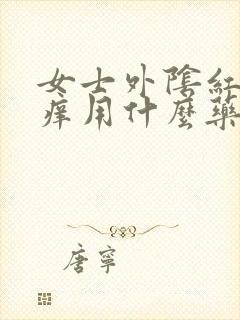 女士外陰紅
痒用什麼藥
唐寧